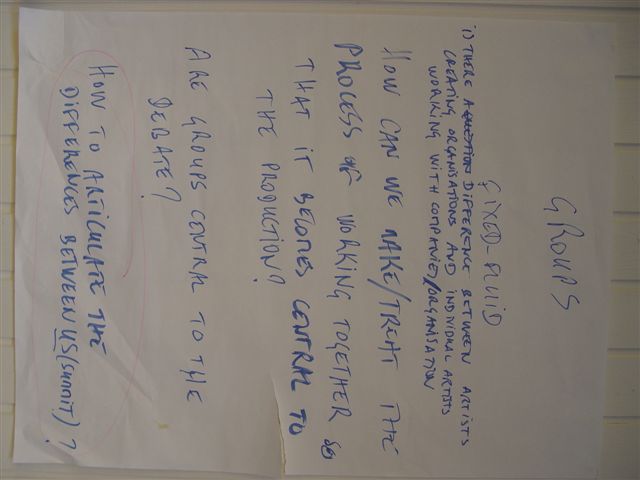 GROUPS
FIXED-FLUID
IS THERE A QUESTION DIFFERENCE BETWEEN ARTISTS
CREATING ORGANISATIONS AND INDIVIDUAL ARTISTS
WORKING WITH COMPANIES/ORGANISATION
HOW CAN WE MAKE/TREAT THE
PROCESS OF WORKING TOGETHER SO
THAT IT BECOMES CENTRAL TO
THE PRODUCTION?
ARE GROUPS CENTRAL TO THE
DEBATE?
HOW TO ARTICULATE THE
DIFFERENCES BETWEEN US (summit)?